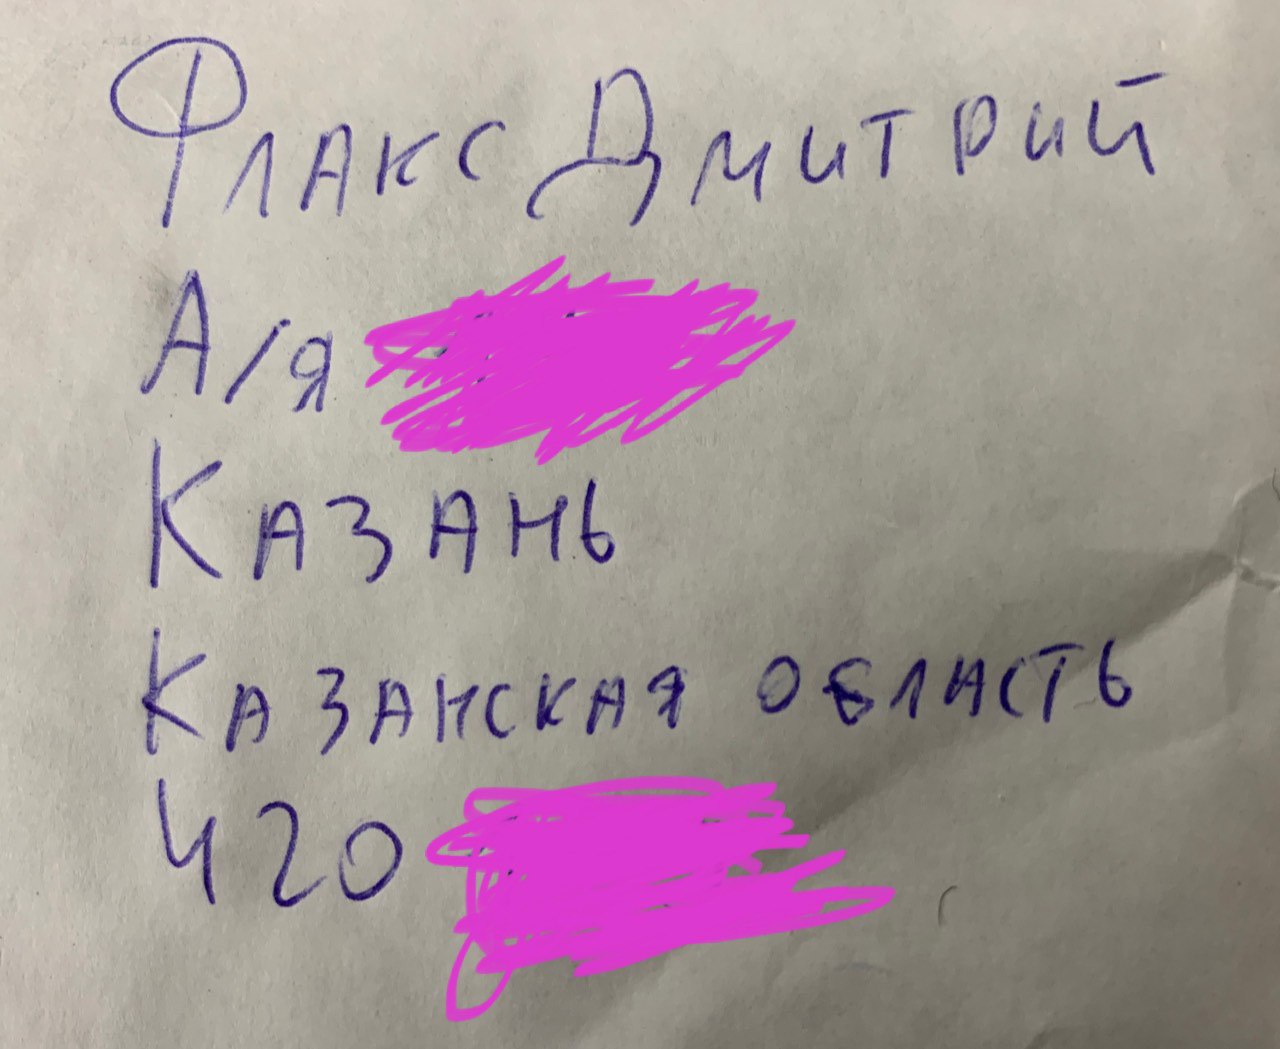 Флакс Дмитрий
А/я
Казань
Казанская область
420